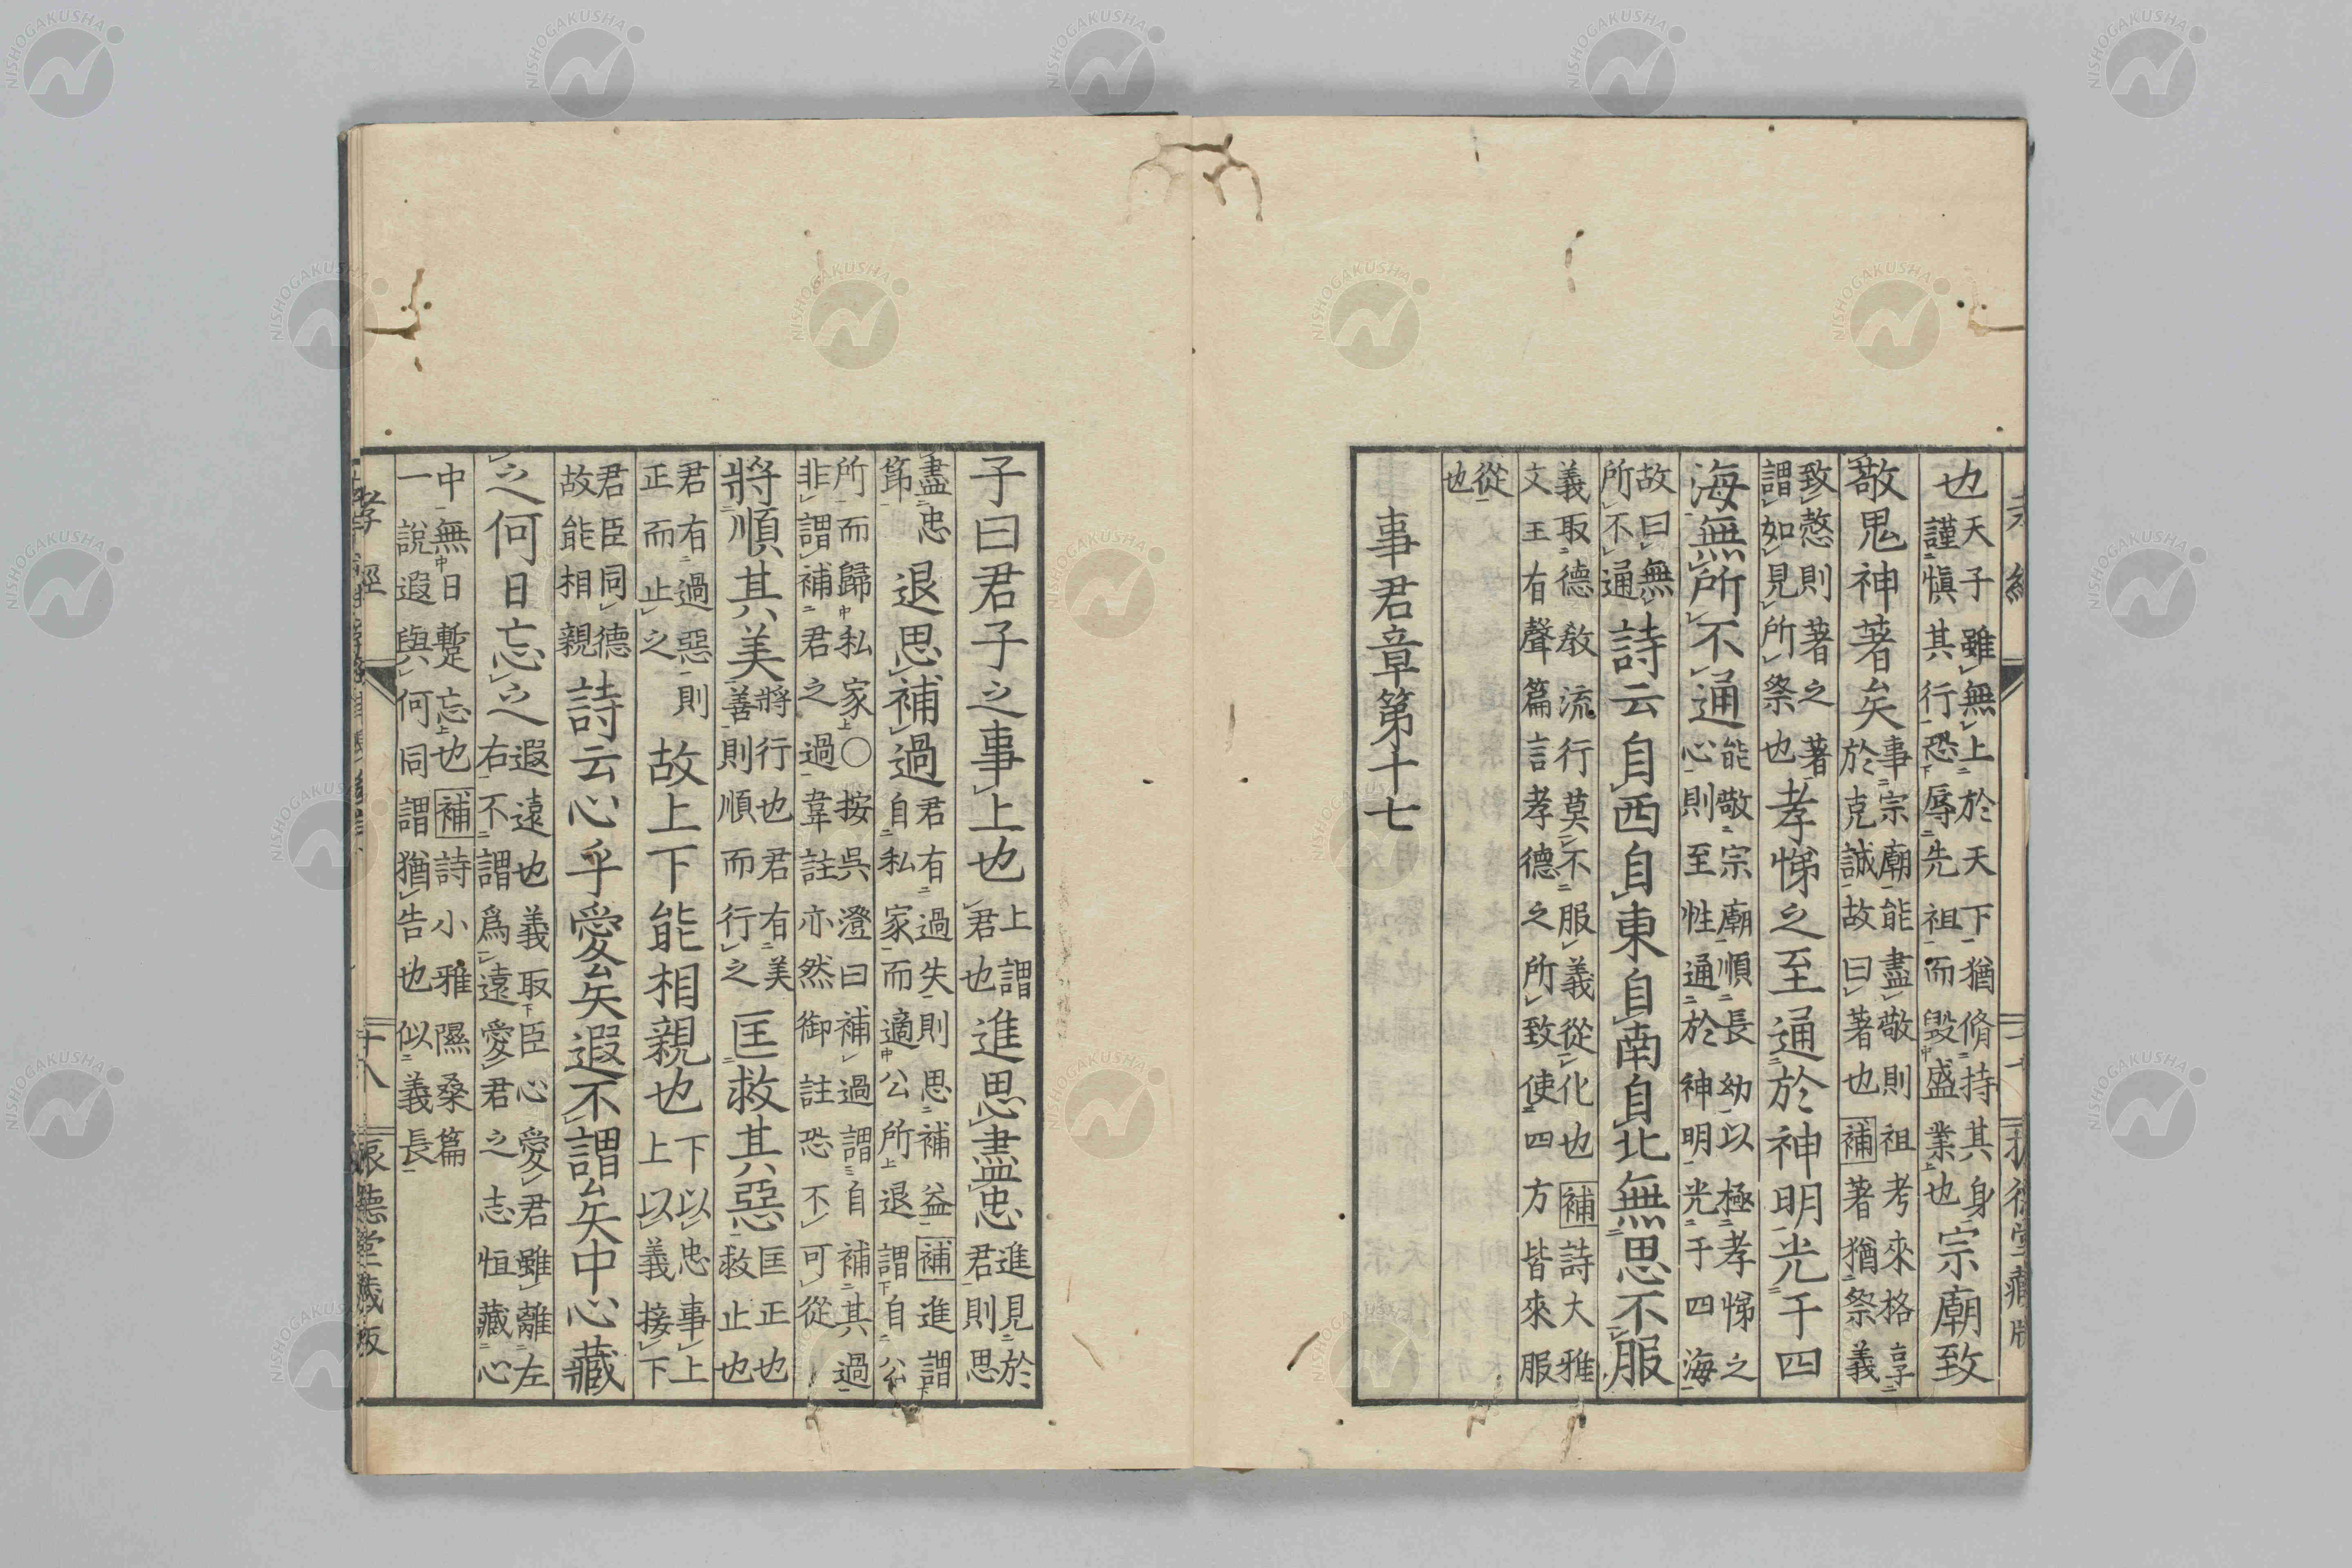 也天子雖無上於天下猶脩持其身謹慎其行恐辱先祖而毀盛業也宗廟致
敬鬼神著矣事宗廟能盡敬則祖考來格享於克誠故曰著也補著猶祭義
致慤則著之著謂如見所祭也孝悌之至通於神明光于四
海無所不通能敬宗廟順長幼以極孝悌之心則至性通於神明光于四海
故曰無所不通詩云自西自東自南自北無思不服
義取德教流行莫不服義從化也補詩大雅文王有聲篇言孝德之所致使四方皆來服
從也
事君章第十七
子曰君子之事上也上謂君也進思盡忠進見於君則思
盡忠節退思補過君有過失則思補益補進謂自私家而適公所退謂自公
所而歸私家○按吳澄曰補過謂自補其過非謂補君之過韋註亦然御註恐不可從
將順其美將行也君有美善則順而行之匡救其惡匡正也救止也
君有過惡則正而止之故上下能相親也下以忠事上上以義接下
君臣同德故能相親詩云心乎愛矣遐不謂矣中心藏
之何日忘之遐遠也義取臣心愛君雖離左右不謂爲遠愛君之志恒藏心
中無日蹔忘也補詩小雅隰桑篇一說遐與何同謂猶告也似義長
孝經
十八